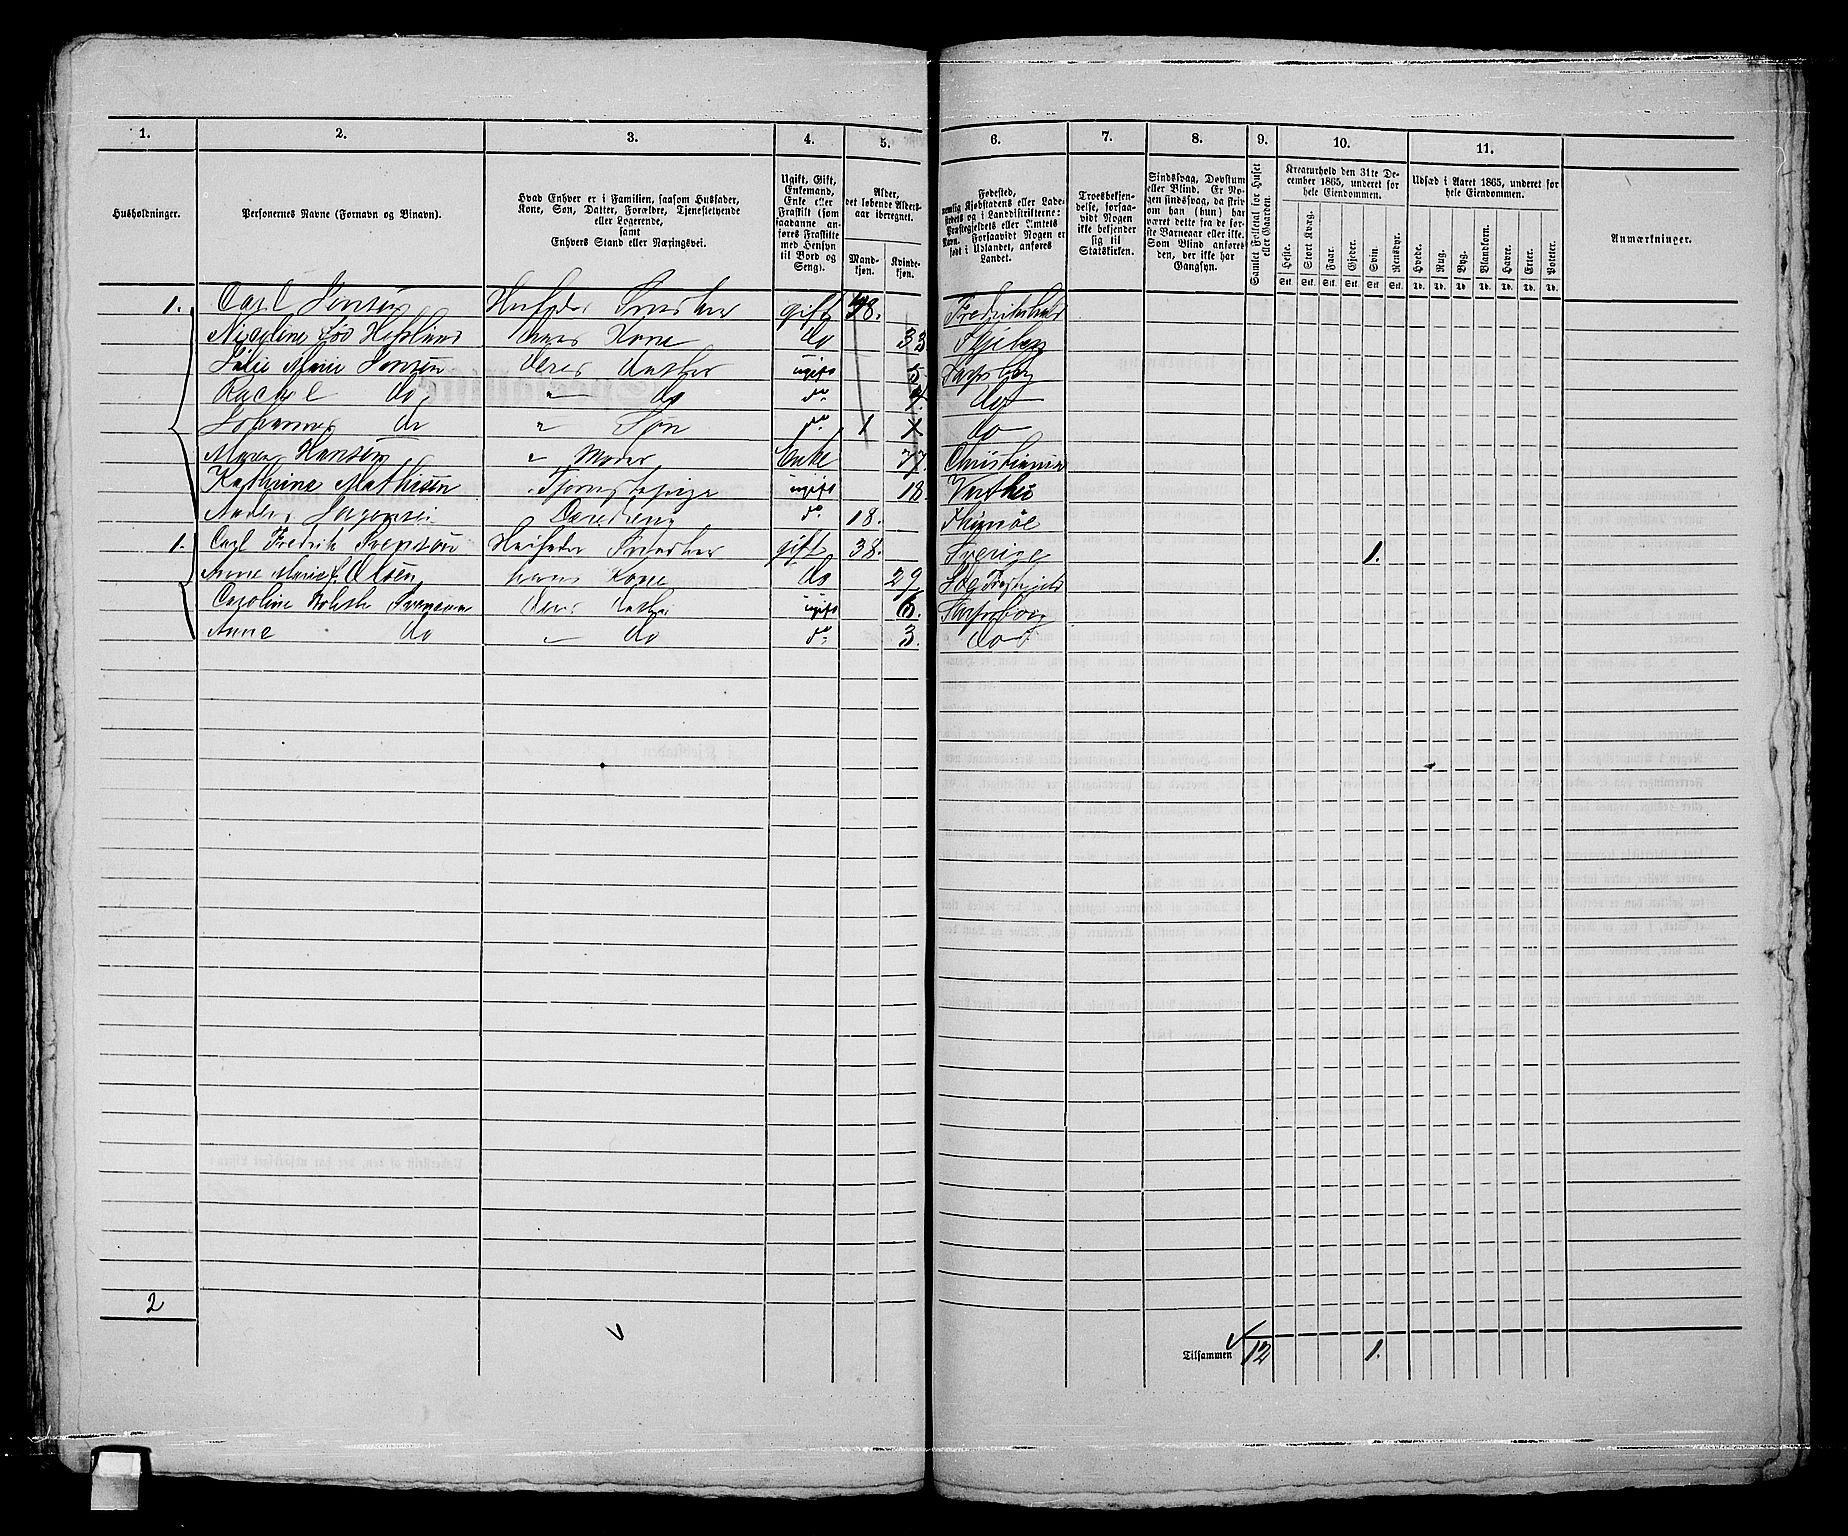 1. 2. 3. 4. 5. 6. 7. 8. 9. 10. 11.
Husholdninger.
Personernes Navne (Fornavn og Binavn).
Hvad Enhver er i Familien, saasom Husfader,
Kone, Søn, Datter, Forældre, Tjenestetyende
eller Logerende,
samt
Enhvers Stand eller Næringsvei.
Ugift, Gift,
Enkemand,
Enke eller
Fraskilt (som
saadanne an-
føres Fraskilte
med Hensyn
til Bord og
Seng).
Alder,
det løbende Alders-
aar iberegnet.
Mand-
kjøn.
Kvinde-
kjøn.
Fødested,
nemlig Kjøbstadens eller Lade-
stedets og i Landdistrikterne:
Præstegjeldets eller Amtets
Navn. Forsaavidt Nogen er
født i Udlandet, anføres
Landet.
Troesbekjen-
delse, forsaa-
vidt Nogen
ikke bekjender
sig til
Statskirken.
Sindssvag, Døvstum
eller Blind. Er No-
gen sindssvag, da skriv
om han (hun) har
været dette fra de før-
ste Barneaar eller ikke.
Som Blind anføres
den, der ikke har
Gangsyn.
Samlet Folketal for Huset
eller Gaarden.
Kreaturhold den 31te De-
cember 1865, underet for
hele Eiendommen.
Heste. Stort Kvæg. Faar. Gjeder. Svin. Rensdyr.
Stk. Stk. Stk. Stk. Stk. Stk.
Udsæd i Aaret 1865, underet for
hele Eiendommen.
Hvede. Rug. Byg. Blandkorn. Havre. Erter. Poteter.
Td. Td. Td. Td. Td. Td. Td.
Anmærkninger.
1. Carl Jensen Husfader Snedker gift 38. Fredrikshald
Nicoline hans Kone do 33 Skjeberg
Julie Marie Jensen deres Datter ugift 5. Sarpsborg
Rachel do " do do do
Johannes do " Søn do 1 do
Maren Hansen " Moder Enke 77. Christiania
Kathrine Mathisen Tjenestepige ugift 18
Anders do 18.
1. Carl Fredrik Svensøn Husfader Snedker gift 38. Sverige 1.
Anne Marie Olsen hans Kone do 29
Caroline Svensen deres Datter ugift 6. Sarpsborg
Anne do " do do 3. do
2
Tilsammen 12 1.